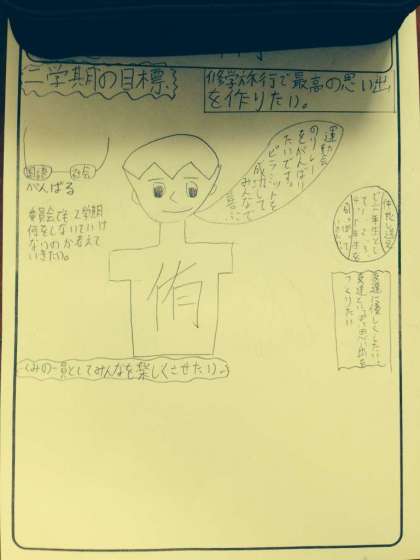 二学期の目標
修学旅行で最高の思い出
を作りたい。
国語
がんばる
委員会でも2学期
何をしないていけ
ないのか考えて
いきたい。
運動会
のリレー
をがんばり
たいです。
ピラミットを
成功して
みんなで
喜ぶ
侑
友達に優しくしたいし
友達といっぱい思い出を
つくりたい
くみの一員としてみんなを楽しくさせたい。